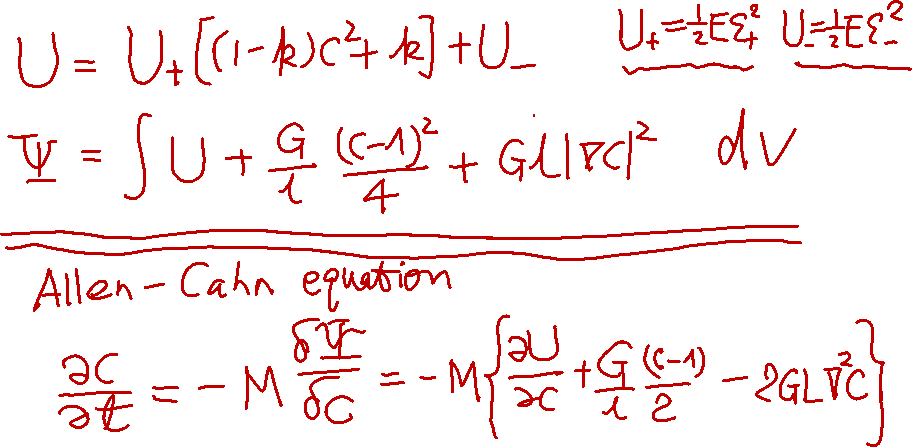 U = U₊[(1-k)c²+k]+U₋    U₊=½Eε₊² U₋=½Eε₋²
Ψ = ∫ U + G/l (c-1)²/4 + Gl|∇c|² dv
Allen-Cahn equation
∂c/∂t = -M δΨ/δc = -M{∂U/∂c + G/l (c-1)/2 - 2GL∇²c}